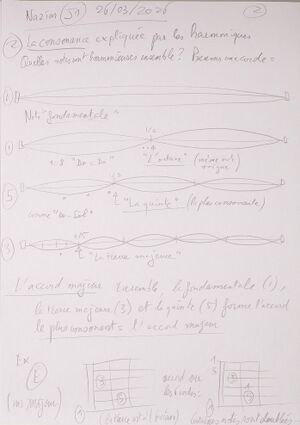 Nazim (S1) 26/03/2026 (2)
(2) La consonance expliquée par les harmoniques
Quelles notes sont harmonieuses ensemble? Prenons une corde:
(1)
Note "fondamentale"
1/2
(1)
1:8 "Do - Do" "L'octave" (même note
(5)
comme "Do-Sol" "La quinte" (la plus consonante)
1/5
(3)
"La tierce majeure"
L'accord majeur Ensemble, la fondamentale (1),
la tierce majeure (3) et la quinte (5) forme l'accord
le plus consonant: l'accord majeur.
Ex
(E)
(mi majeur)
(3)
(5)
(1)
1
5
(3)
(1)